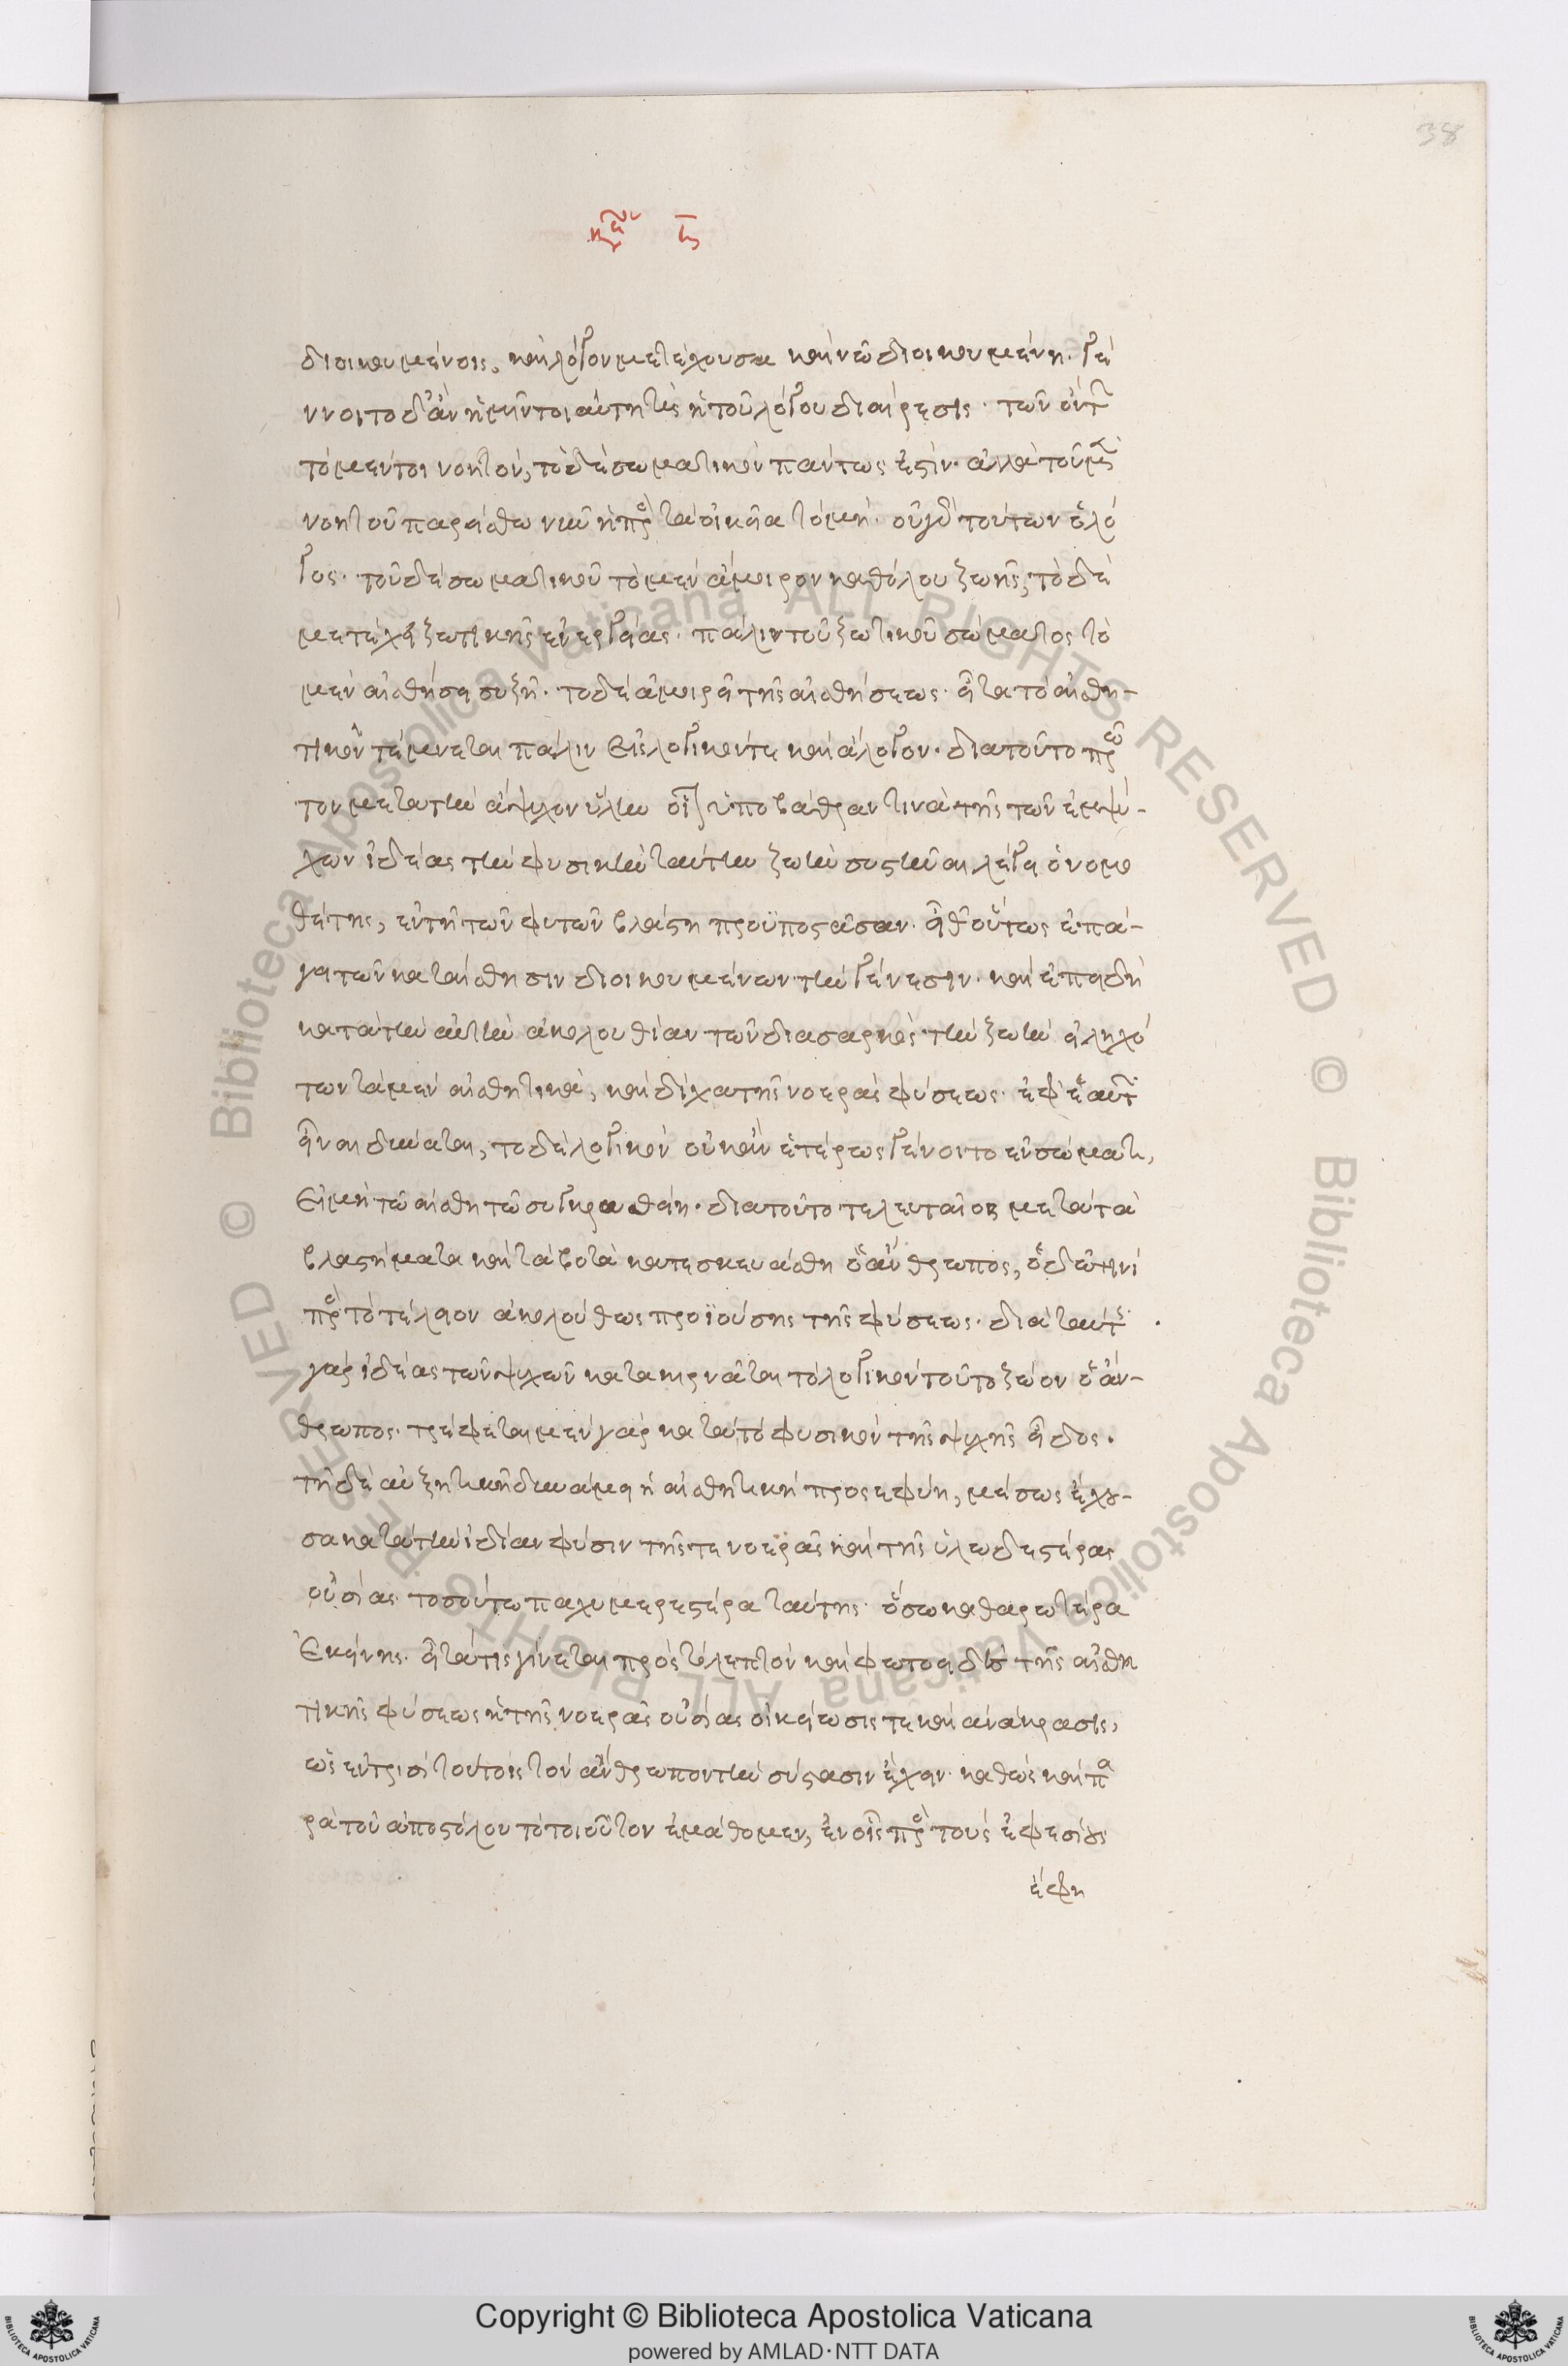 38
διοικουμένοις, καὶ λόγον μετέχουσα καὶ νῶ διοικουμένη. γέ
νοιτο δ' ἂν ἡμῖν τοιαύτη τίς ἡ τοῦ λόγου διαίρεσις. τῶν ὄντ
τὸ μέν τοι νοητόν, τὸ δὲ σωματικὸν πάντως ἐστίν. ἀλλὰ τοῦ μὲ
νοητοῦ παρείσθω νῦν ἡ πρὸς τὰ οἰκεῖα τομή. οὐ γὰρ τούτων ὁ λό
γος. τοῦ δὲ σωματικοῦ τὸ μὲν ἄμοιρον καθόλου ζωῆς, τὸ δὲ
μετέχει ζωτικῆς ἐνεργείας. πάλιν τοῦ ζωτικοῦ σώματος τὸ
μὲν αἰσθήσει συζῆ. τὸ δὲ ἀμοιρεῖ τῆς αἰσθήσεως. εἶτα τὸ αἰσθη-
τικὸν τέμνεται πάλιν εἰς λογικόν τε καὶ ἄλογον. διατοῦτο πρῶ
τον μετὰ τὴν ἄψυχον ὕλην οἷον ὑποβάθραν τινὰ τῆς τῶν ἐμψύ-
χων ἰδέας τὴν φυσικὴν ταύτην ζωὴν συστῆναι λέγει ὁ νομο
θέτης, ἐν τῆ τῶν φυτῶν βλάστη προϋποστᾶσαν. εἶθ' οὕτως ἐπά-
γει τῶν κατ' αἴσθησιν διοικουμένων τὴν γένεσιν. καὶ ἐπειδὴ
κατὰ τὴν αὐτὴν ἀκολουθίαν τῶν διασαρκὸς τὴν ζωὴν εἰληχό
των τὰ μὲν αἰσθητικὰ, καὶ δίχα τῆς νοερᾶς φύσεως ἐφ' ἑαυτ
εἶναι δύναται, τὸ δὲ λογικὸν οὐκ ἂν ἑτέρως γένοιτο ἐν σώματι,
εἰ μὴ τῶ αἰσθητῶ συγκραθείη. διατοῦτο τελευταῖος μετὰ τὰ
βλαστήματα καὶ τὰ βοτὰ κατεσκευάσθη ὁ ἄνθρωπος, ὁδῶ τινὶ
πρὸς τὸ τέλειον ἀκολούθως προϊούσης τῆς φύσεως. διὰ παντ
γὰρ ἰδέας τῶν ψυχῶν κατακιρνᾶται τὸ λογικὸν τοῦτο ζῶον ὁ ἄν-
θρωπος. τρέφεται μὲν γὰρ κατὰ τὸ φυσικὸν τῆς ψυχῆς εἶδος.
τῆ δὲ αὐξητικῆ δυνάμει ἡ αἰσθητικὴ προσεφύη, μέσως ἔχου-
σα κατὰ τὴν ἰδίαν φύσιν τῆς τε νοερᾶς καὶ τῆς ὑλωδεστέρας
οὐσίας τοσούτω παχυμερεστέρα ταύτης. ὅσω καθαρωτέρα
ἐκείνης. εἶτά τις γίνεται πρὸς τὸ λεπτὸν καὶ φωτοειδὲς τῆς αἰσθη
τικῆς φύσεως ἡ τῆς νοερᾶς οὐσίας οἰκείωσίς τε καὶ ἀνάκρασις,
ὡς ἐν τρισὶ τούτοις τὸν ἄνθρωπον τὴν σύστασιν ἔχειν. καθὼς καὶ πα
ρὰ τοῦ ἀποστόλου τὸ τοιοῦτον ἐμάθομεν, ἐν οἷς πρὸς τοὺς ἐφεσίους
ἔφη
Copyright © Biblioteca Apostolica Vaticana
powered by AMLAD·NTT DATA